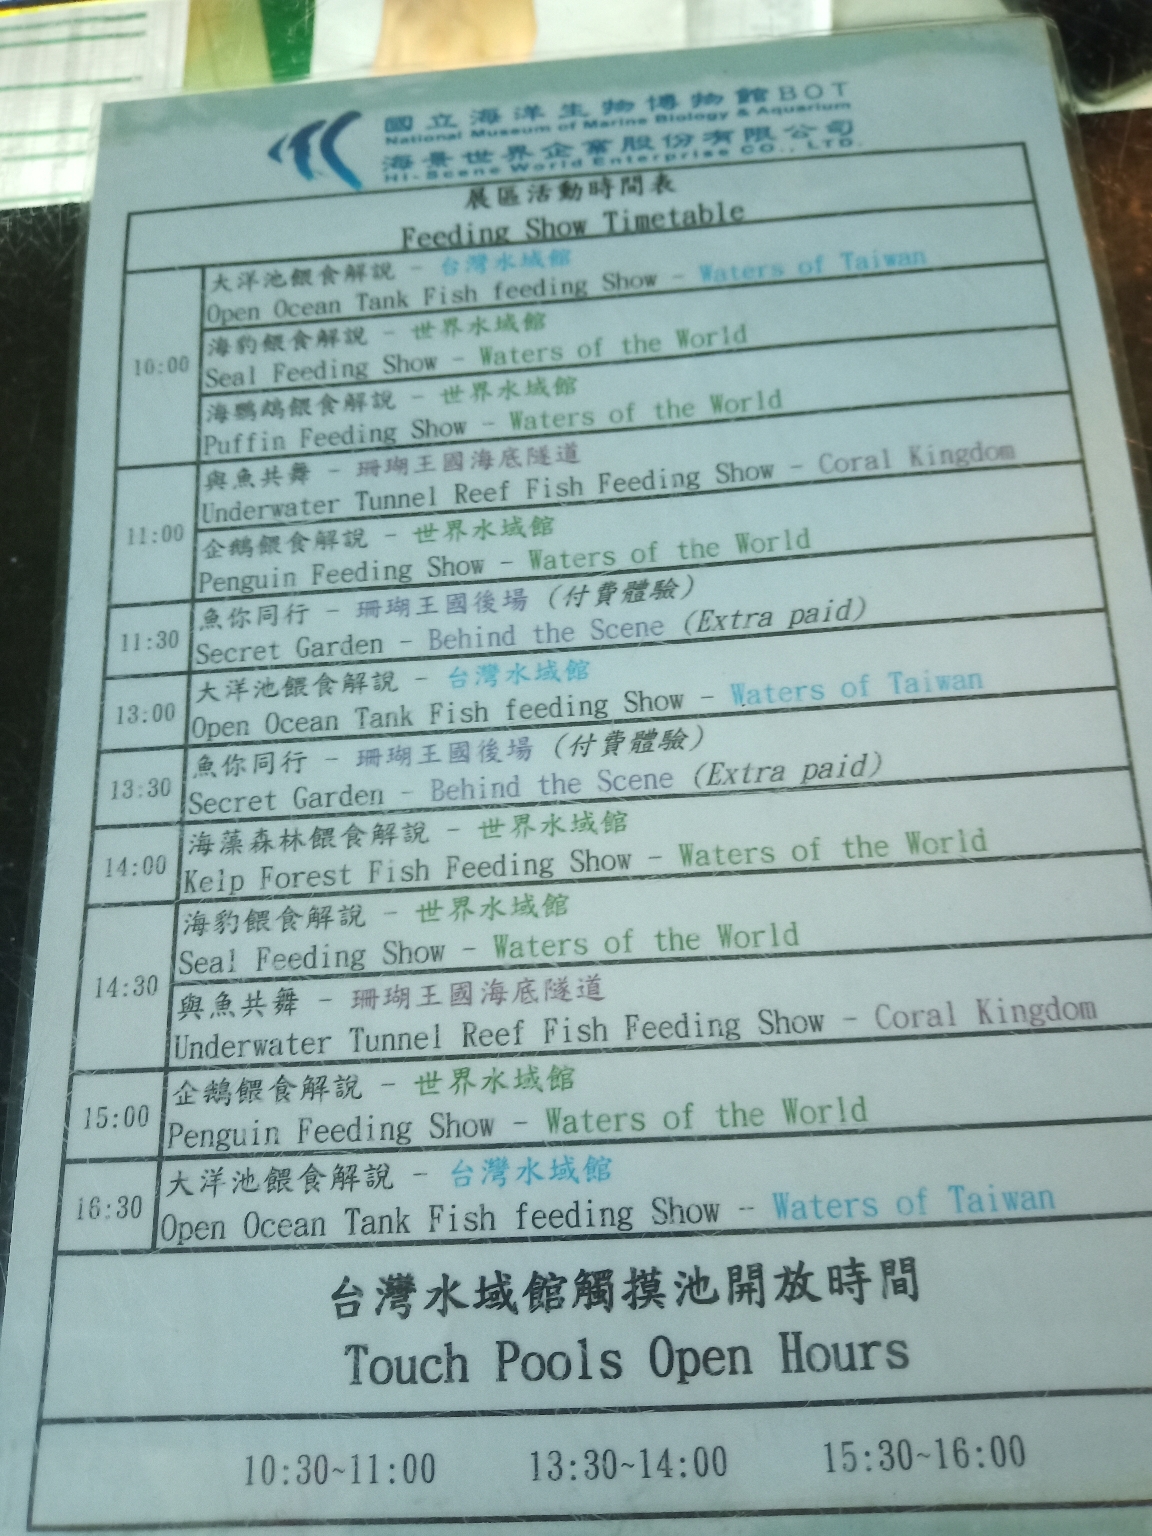 國立海洋生物博物館BOT
National Museum of Marine Biology & Aquarium
海景世界企業股份有限公司
Hi-Scene World Enterprise CO., LTD.
展區活動時間表
Feeding Show Timetable
10:00
大洋池餵食解說 - 台灣水域館
Open Ocean Tank Fish feeding Show - Waters of Taiwan
海豹餵食解說 - 世界水域館
Seal Feeding Show - Waters of the World
海鸚鵡餵食解說 - 世界水域館
Puffin Feeding Show - Waters of the World
11:00
與魚共舞 - 珊瑚王國海底隧道
Underwater Tunnel Reef Fish Feeding Show - Coral Kingdom
企鵝餵食解說 - 世界水域館
Penguin Feeding Show - Waters of the World
11:30
魚你同行 - 珊瑚王國後場 (付費體驗)
Secret Garden - Behind the Scene (Extra paid)
13:00
大洋池餵食解說 - 台灣水域館
Open Ocean Tank Fish feeding Show - Waters of Taiwan
13:30
魚你同行 - 珊瑚王國後場 (付費體驗)
Secret Garden - Behind the Scene (Extra paid)
14:00
海藻森林餵食解說 - 世界水域館
Kelp Forest Fish Feeding Show - Waters of the World
14:30
海豹餵食解說 - 世界水域館
Seal Feeding Show - Waters of the World
與魚共舞 - 珊瑚王國海底隧道
Underwater Tunnel Reef Fish Feeding Show - Coral Kingdom
15:00
企鵝餵食解說 - 世界水域館
Penguin Feeding Show - Waters of the World
16:30
大洋池餵食解說 - 台灣水域館
Open Ocean Tank Fish feeding Show - Waters of Taiwan
台灣水域館觸摸池開放時間
Touch Pools Open Hours
10:30~11:00 13:30~14:00 15:30~16:00